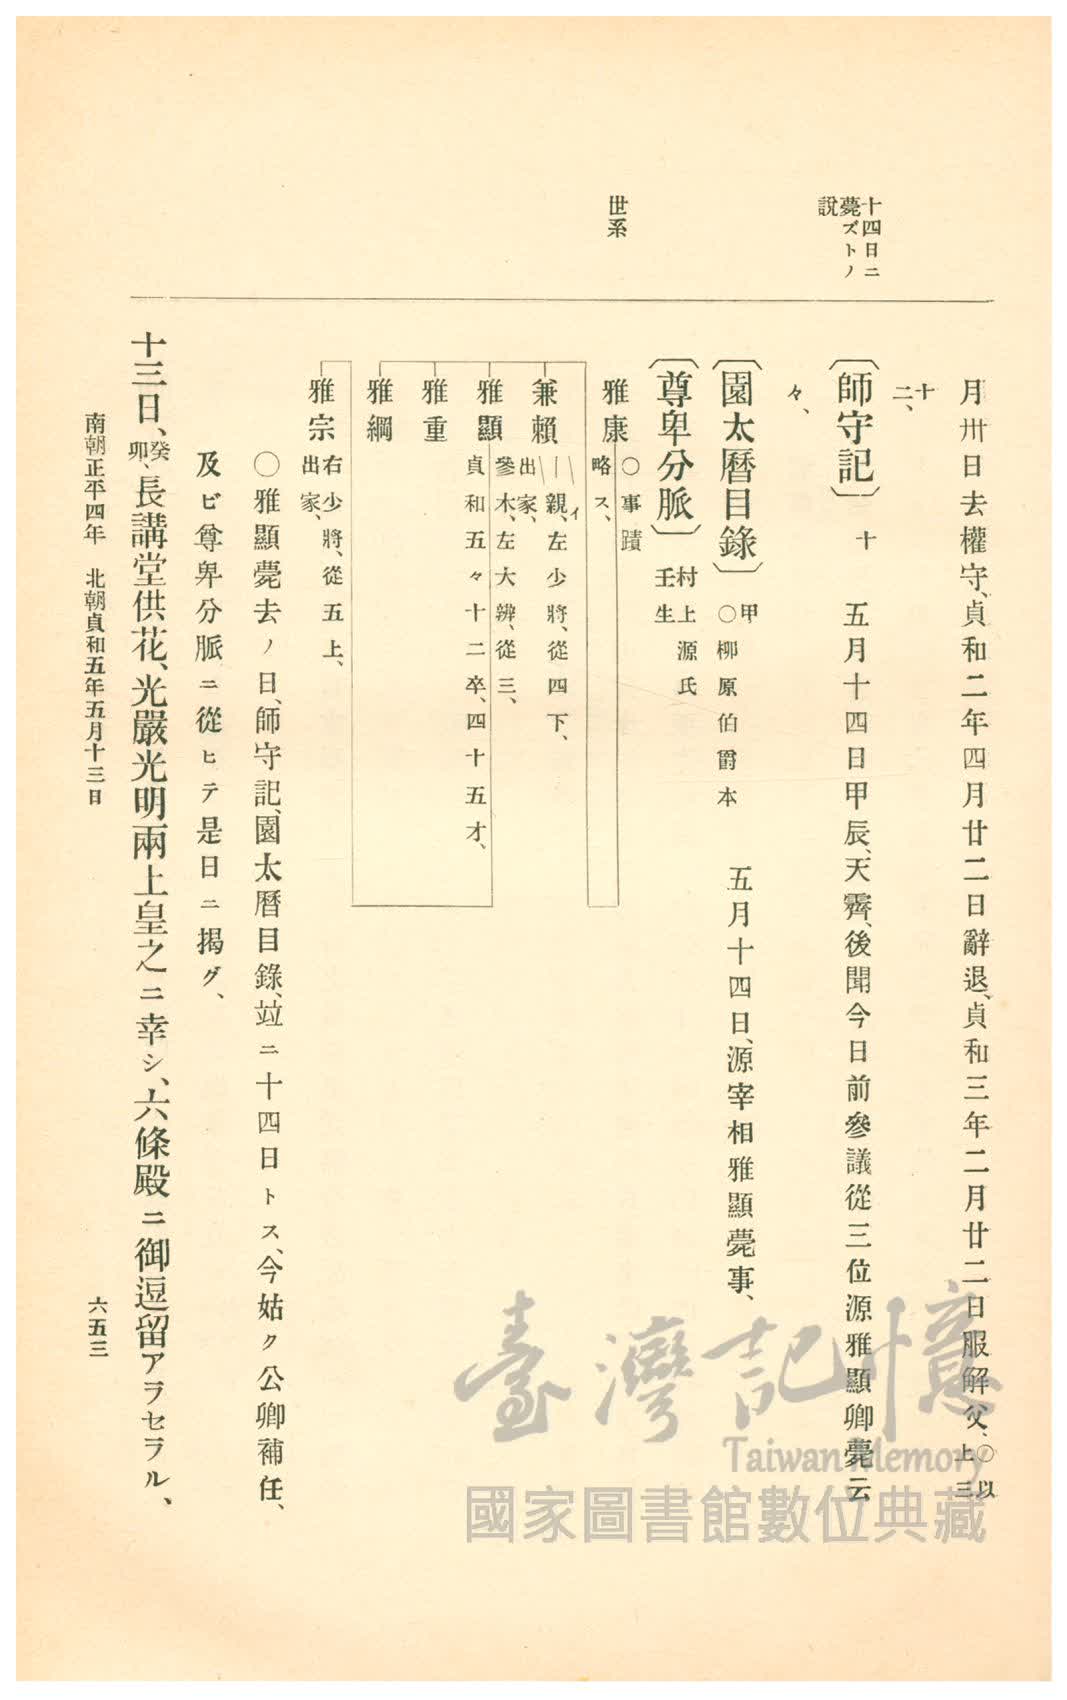 十四日ニ
薨ズトノ
說
世系
月卅日去權守、貞和二年四月廿二日辭退、貞和三年二月廿二日服解父、○以上三
十二、
〔師守記〕 十 五月十四日甲辰、天霽、後聞今日前參議從三位源雅顯卿薨云
々、
〔園太曆目錄〕 甲 ○柳原伯爵本 五月十四日、源宰相雅顯薨事、
〔尊卑分脈〕 村上源氏
壬生
雅康 ○事蹟
略ス、
兼賴 親、イ 左少將、從四下、
出家、
雅顯 參木、左大辨、從三、
貞和五々十二卒、四十五才、
雅重
雅綱
雅宗 右少將、從五上、
出家、
○雅顯薨去ノ日、師守記、園太曆目錄、竝ニ十四日トス、今姑ク公卿補任、
及ビ尊卑分脈ニ從ヒテ是日ニ揭グ、
十三日、癸卯、長講堂供花、光嚴光明兩上皇之ニ幸シ、六條殿ニ御逗留アラセラル、
南朝正平四年 北朝貞和五年五月十三日
六五三
臺灣記憶
Taiwan Memory
國家圖書館數位典藏